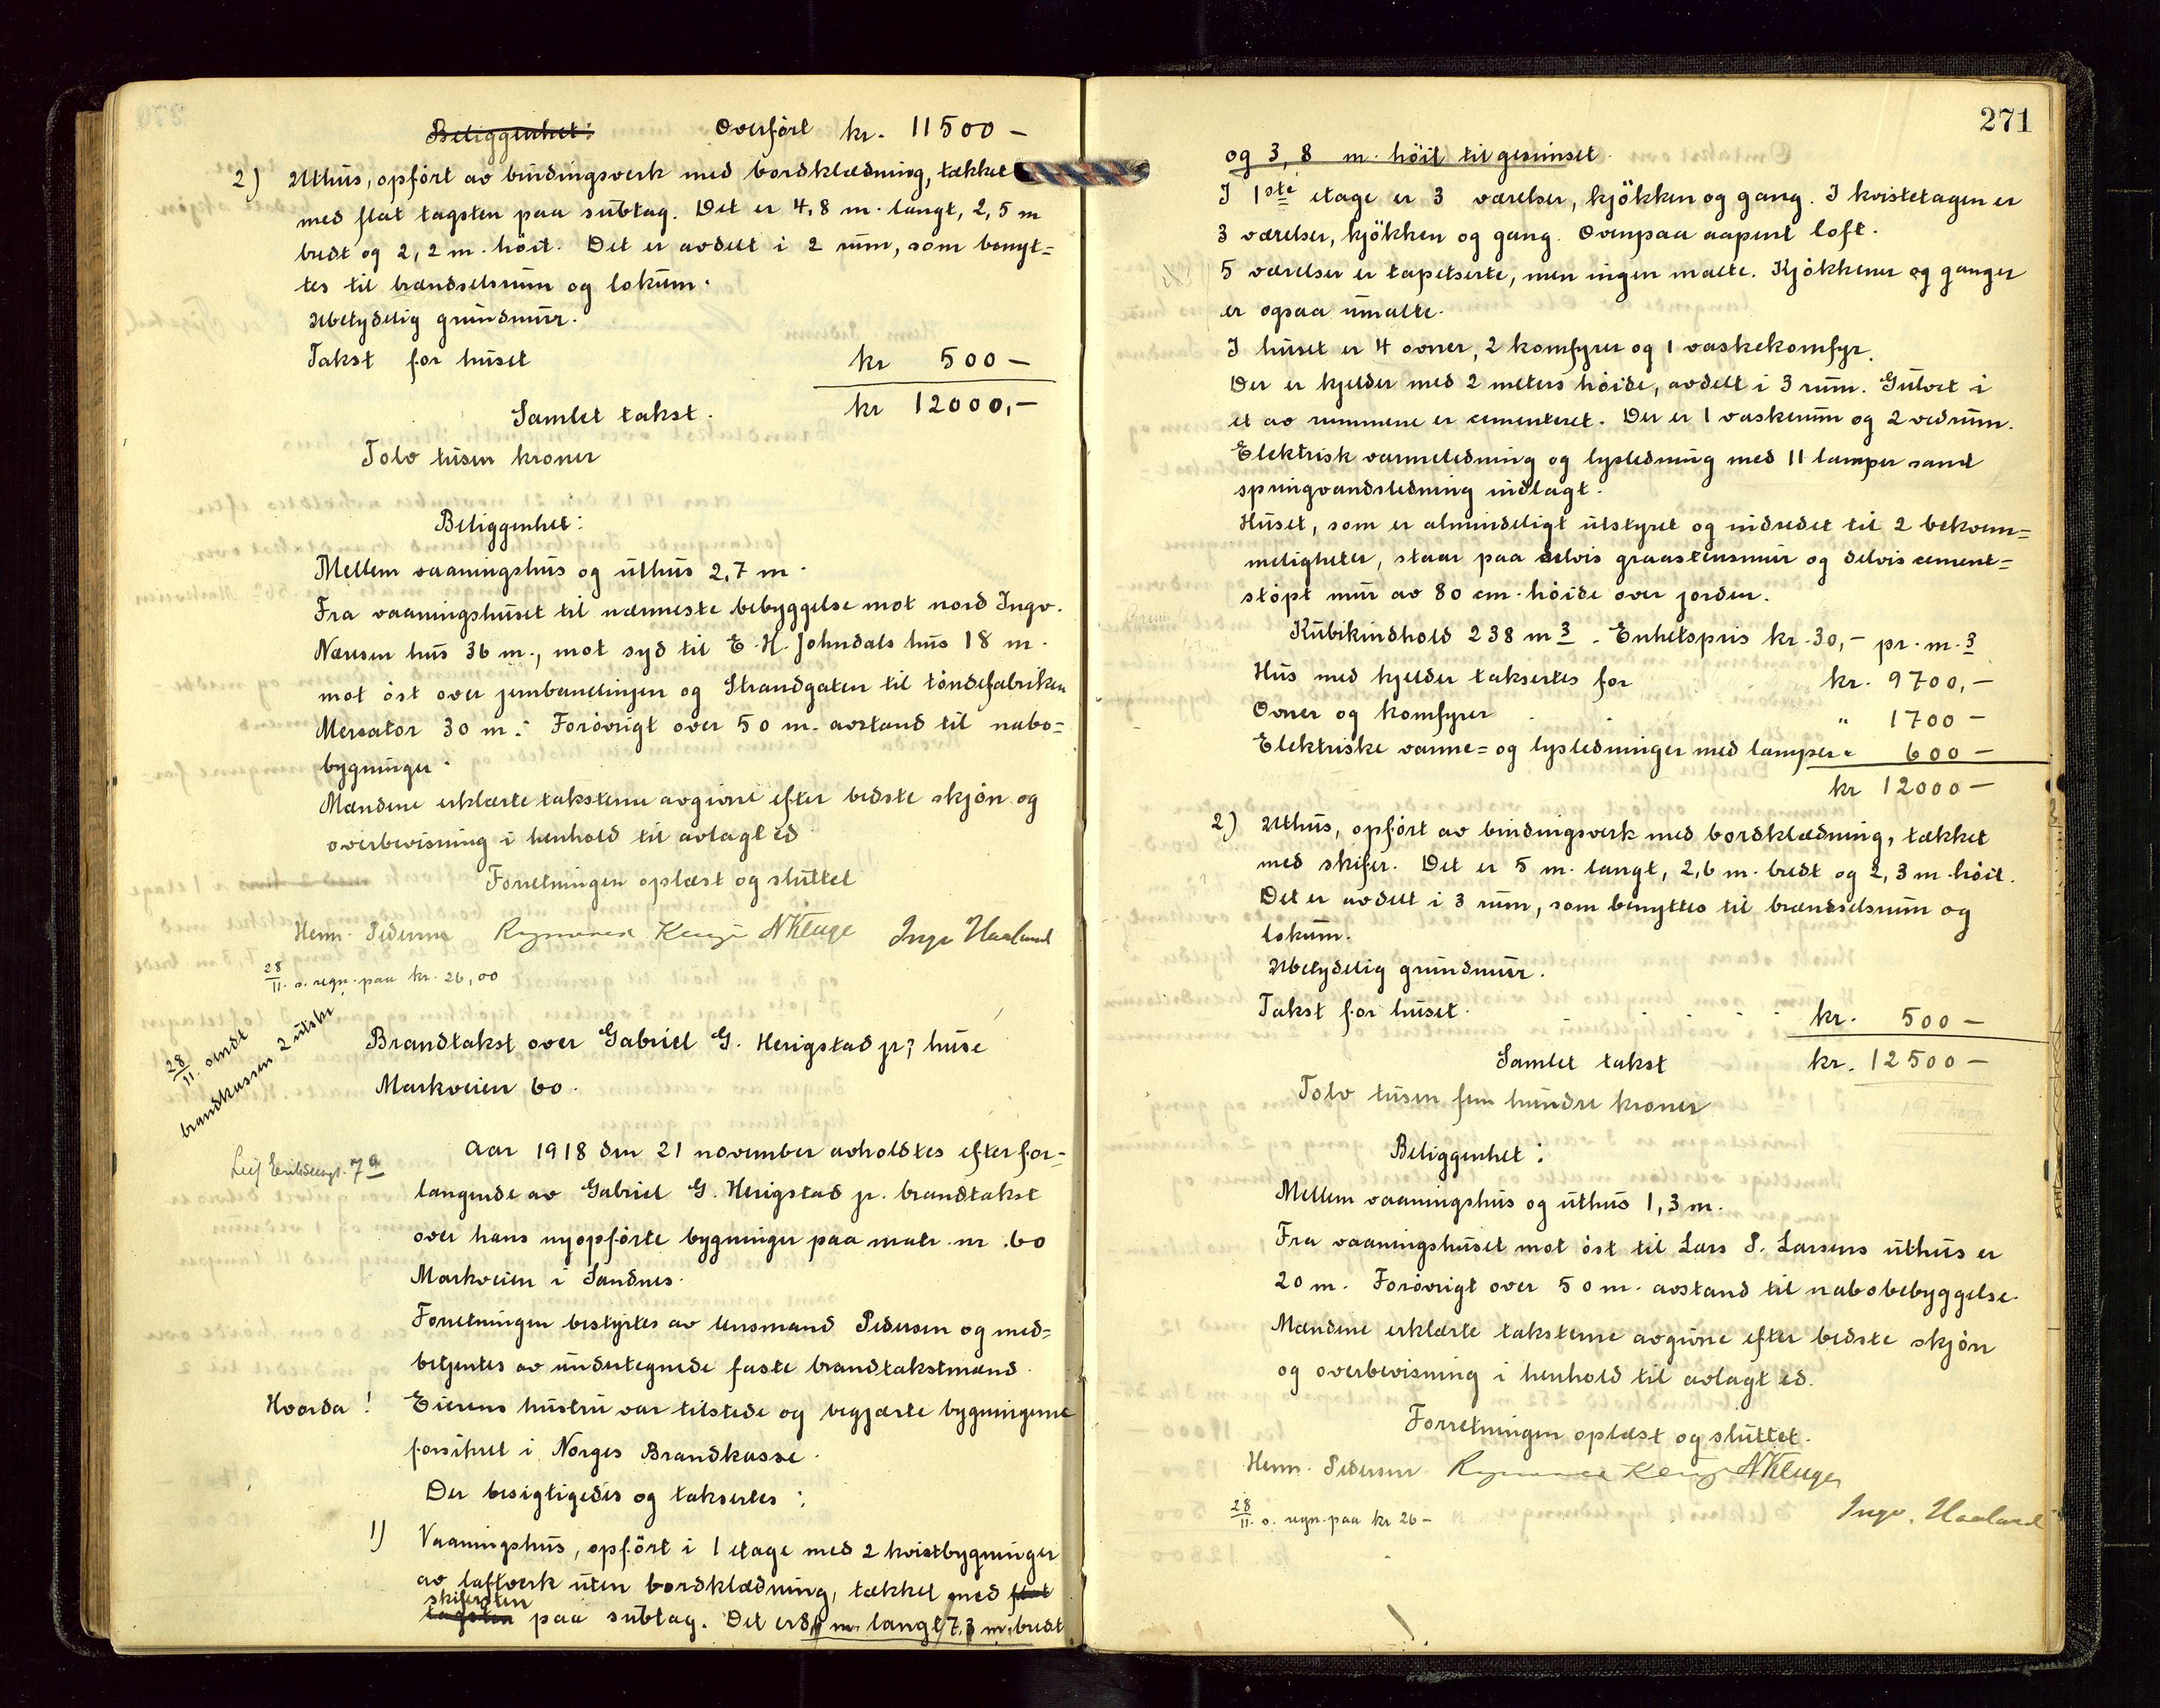 Beliggenhet: Overført kr. 11500 –
2) Uthus, opført av bindingsverk med bordklædning, tækket
med flat tagsten paa subtag. Det er 4,8 m. langt, 2,5 m
bredt og 2,2 m. høit. Det er avdelt i 2 rum, som benyt=
tes til brændselsrum og lokum.
Ubetydelig grundmur.
Takst for huset kr 500 –
Samlet takst. kr 12000,–
Tolv tusen kroner
Beliggenhet:
Mellem vaaningshus og uthus 2,7 m.
Fra vaaningshuset til nærmeste bebyggelse mot nord Ingv.
Næresen hus 36 m., mot syd til E. H. Johndals hus 18 m.
mot øst over jernbanelinjen og Strandgaten til tøndefabriken
Mercator 30 m. Forøvrigt over 50 m. avstand til nabo=
bygninger.
Mændene erklærte taksterne avgivne efter bedste skjøn og
overbevisning i henhold til avlagt ed
Forretningen oplæst og sluttet
Henr. Pedersen N Kluge Ingv Haaland
28/11. s. regn. paa kr. 26,00
28/11. sendt
brandkassen 2 utskr
Brandtakst over Gabriel G. Herigstad jr; huse
Markveien 60.
Leif Eriksensgt. 7a
Aar 1918 den 21 november avholdtes efter for-
langende av Gabriel G. Herigstad jr. brandtakst
over hans nyopførte bygninger paa matr. nr. 60
Markveien i Sandnes.
Forretningen bestyrtes av lensmand Pedersen og med=
betjentes av undertegnede faste brandtakstmænd.
Hvorda! Eierens hustru var tilstede og begjærte bygningerne
forsikret i Norges Brandkasse.
Der besigtigedes og taksertes:
1) Vaaningshus, opført i 1 etage med 2 kvistbygninger
av laftverk uten bordklædning, tækket med flat
skifersten
tagsten paa subtag. Det er 8, m. langt, 7,3 m. bredt
271
og 3,8 m. høit til gesimset.
I 1ste etage er 3 værelser, kjøkken og gang. I kvistetagen er
3 værelser, kjøkken og gang. Ovenpaa aapent loft.
5 værelser er tapetserte, men ingen malte. Kjøkkener og ganger
er ogsaa umalte.
I huset er 4 ovner, 2 komfyrer og 1 vaskekomfyr.
Der er kjelder med 2 meters høide, avdelt i 3 rum. Gulvet i
et av rummene er cementeret. Der er 1 vaskerum og 2 vedrum.
Elektrisk varmeledning og lysledning med 11 lamper samt
springvandsledning indlagt.
Huset, som er almindeligt utstyret og indredet til 2 bekvem=
meligheter, staar paa delvis graastensmur og delvis cement=
støpt mur av 80 cm. høide over jorden.
Kubikindhold 238 m3. Enhetspris kr. 30,– pr. m.3
Hus med kjelder taksertes for kr. 9700,–
Ovner og komfyrer " 1700 –
Elektriske varme= og lysledninger med lamper " 600 –
kr 12000 –
2) Uthus, opført av bindingsverk med bordklædning, tækket
med skifer. Det er 5 m. langt, 2,6 m. bredt og 2,3 m. høit.
Det er avdelt i 3 rum, som benyttes til brændselsrum og
lokum.
Ubetydelig grundmur.
Takst for huset. kr. 500 –
Samlet takst kr. 12500 –
Tolv tusen fem hundre kroner
Beliggenhet:
Mellem vaaningshus og uthus 1,3 m.
Fra vaaningshuset mot øst til Lars P. Larsens uthus er
20 m. Forøvrigt over 50 m. avstand til nabobebyggelse.
Mændene erklærte taksterne avgivne efter bedste skjøn
og overbevisning i henhold til avlagt ed.
Forretningen oplæst og sluttet.
Henr. Pedersen N Kluge
Ingv. Haaland
28/11. s. regn. paa kr 26 –